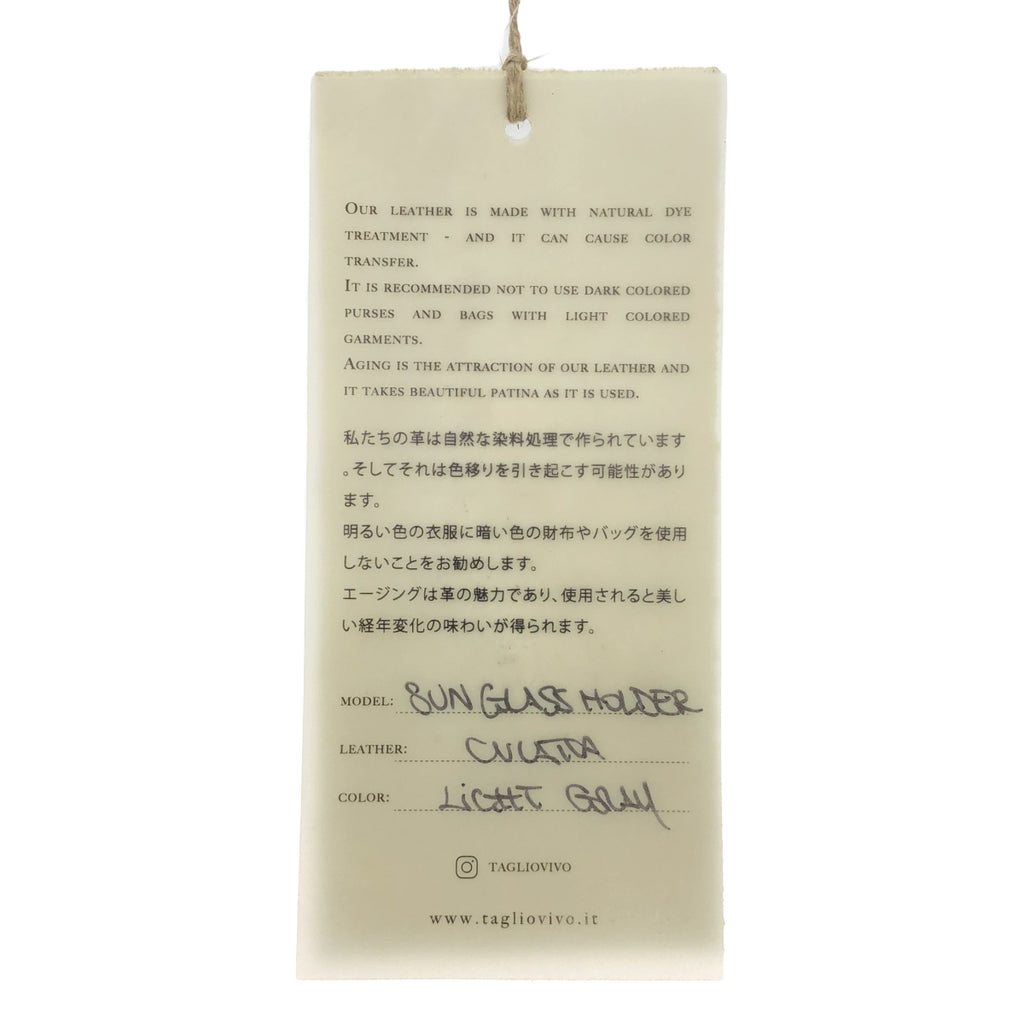 Our leather is made with natural dye
treatment - and it can cause color
transfer.
It is recommended not to use dark colored
purses and bags with light colored
garments.
Aging is the attraction of our leather and
it takes beautiful patina as it is used.
私たちの革は自然な染料処理で作られています
。そしてそれは色移りを引き起こす可能性があり
ます。
明るい色の衣服に暗い色の財布やバッグを使用
しないことをお勧めします。
エージングは革の魅力であり、使用されると美し
い経年変化の味わいが得られます。
MODEL: SUN GLASS HOLDER
LEATHER: CULATTA
COLOR: LIGHT GRAY
TAGLIOVIVO
www.tagliovivo.it